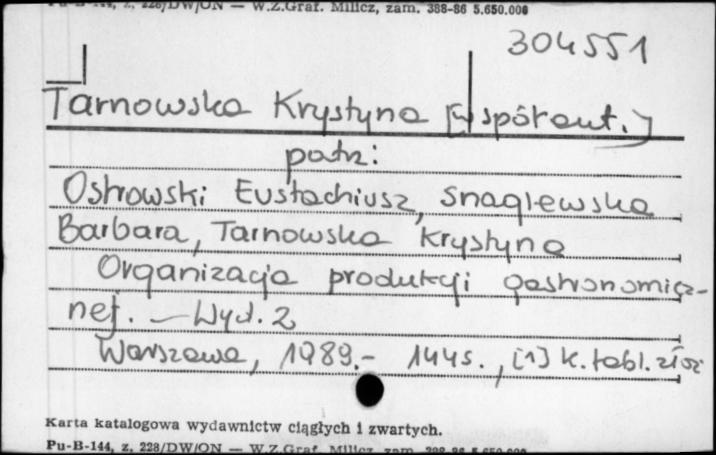 Pu-B-144, z. 228/DW/ON — W.Z.Graf. Milicz, zam. 388-86 5.650.000
304551
Tarnowska Krystyna [współaut.]
patrz:
Ostrowski Eustachiusz, Snaglewska
Barbara, Tarnowska Krystyna
Organizacja produkcji gastronomicz-
nej. — Wyd. 2
Warszawa, 1989.- 144s., [1] k. tabl. złoż
Karta katalogowa wydawnictw ciągłych i zwartych.
Pu-B-144, z. 228/DW/ON — W.Z.Graf. Milicz, zam. 388-86 5.650.000